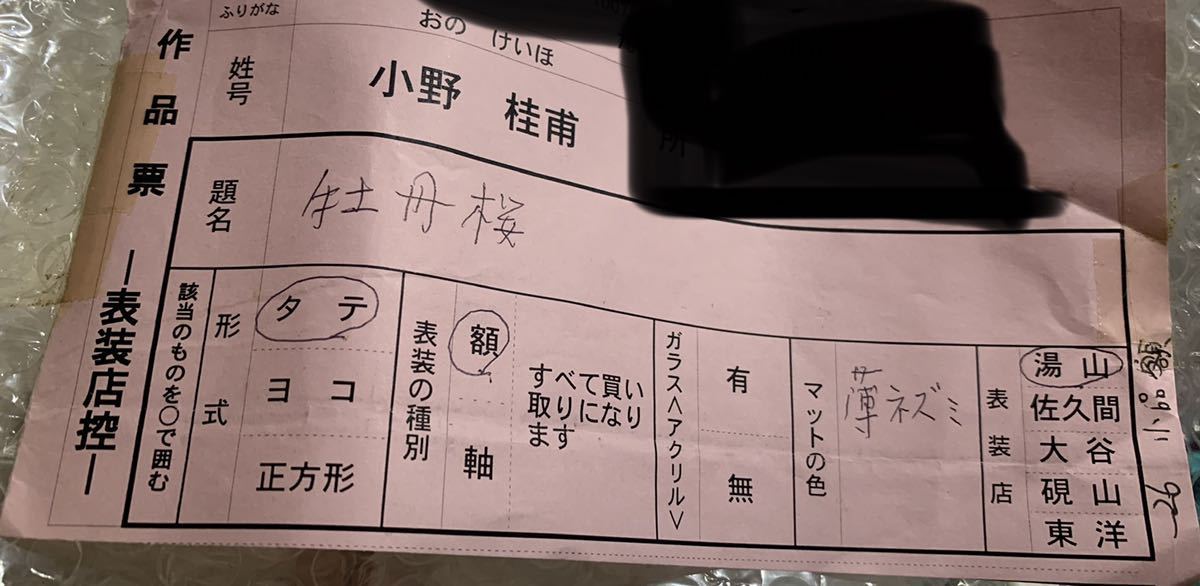 作品票 ―表装店控―
ふりがな
おの けいほ
姓号
小野 桂甫
所
題名
牡丹桜
該当のものを○で囲む
形式
タテ
ヨコ
正方形
表装の種別
額
軸
すべて買い
取りになり
ます
ガラス<アクリル>
有
無
マットの色
薄ネズミ
表装店
湯山
佐久間
大谷
硯山
東洋
26